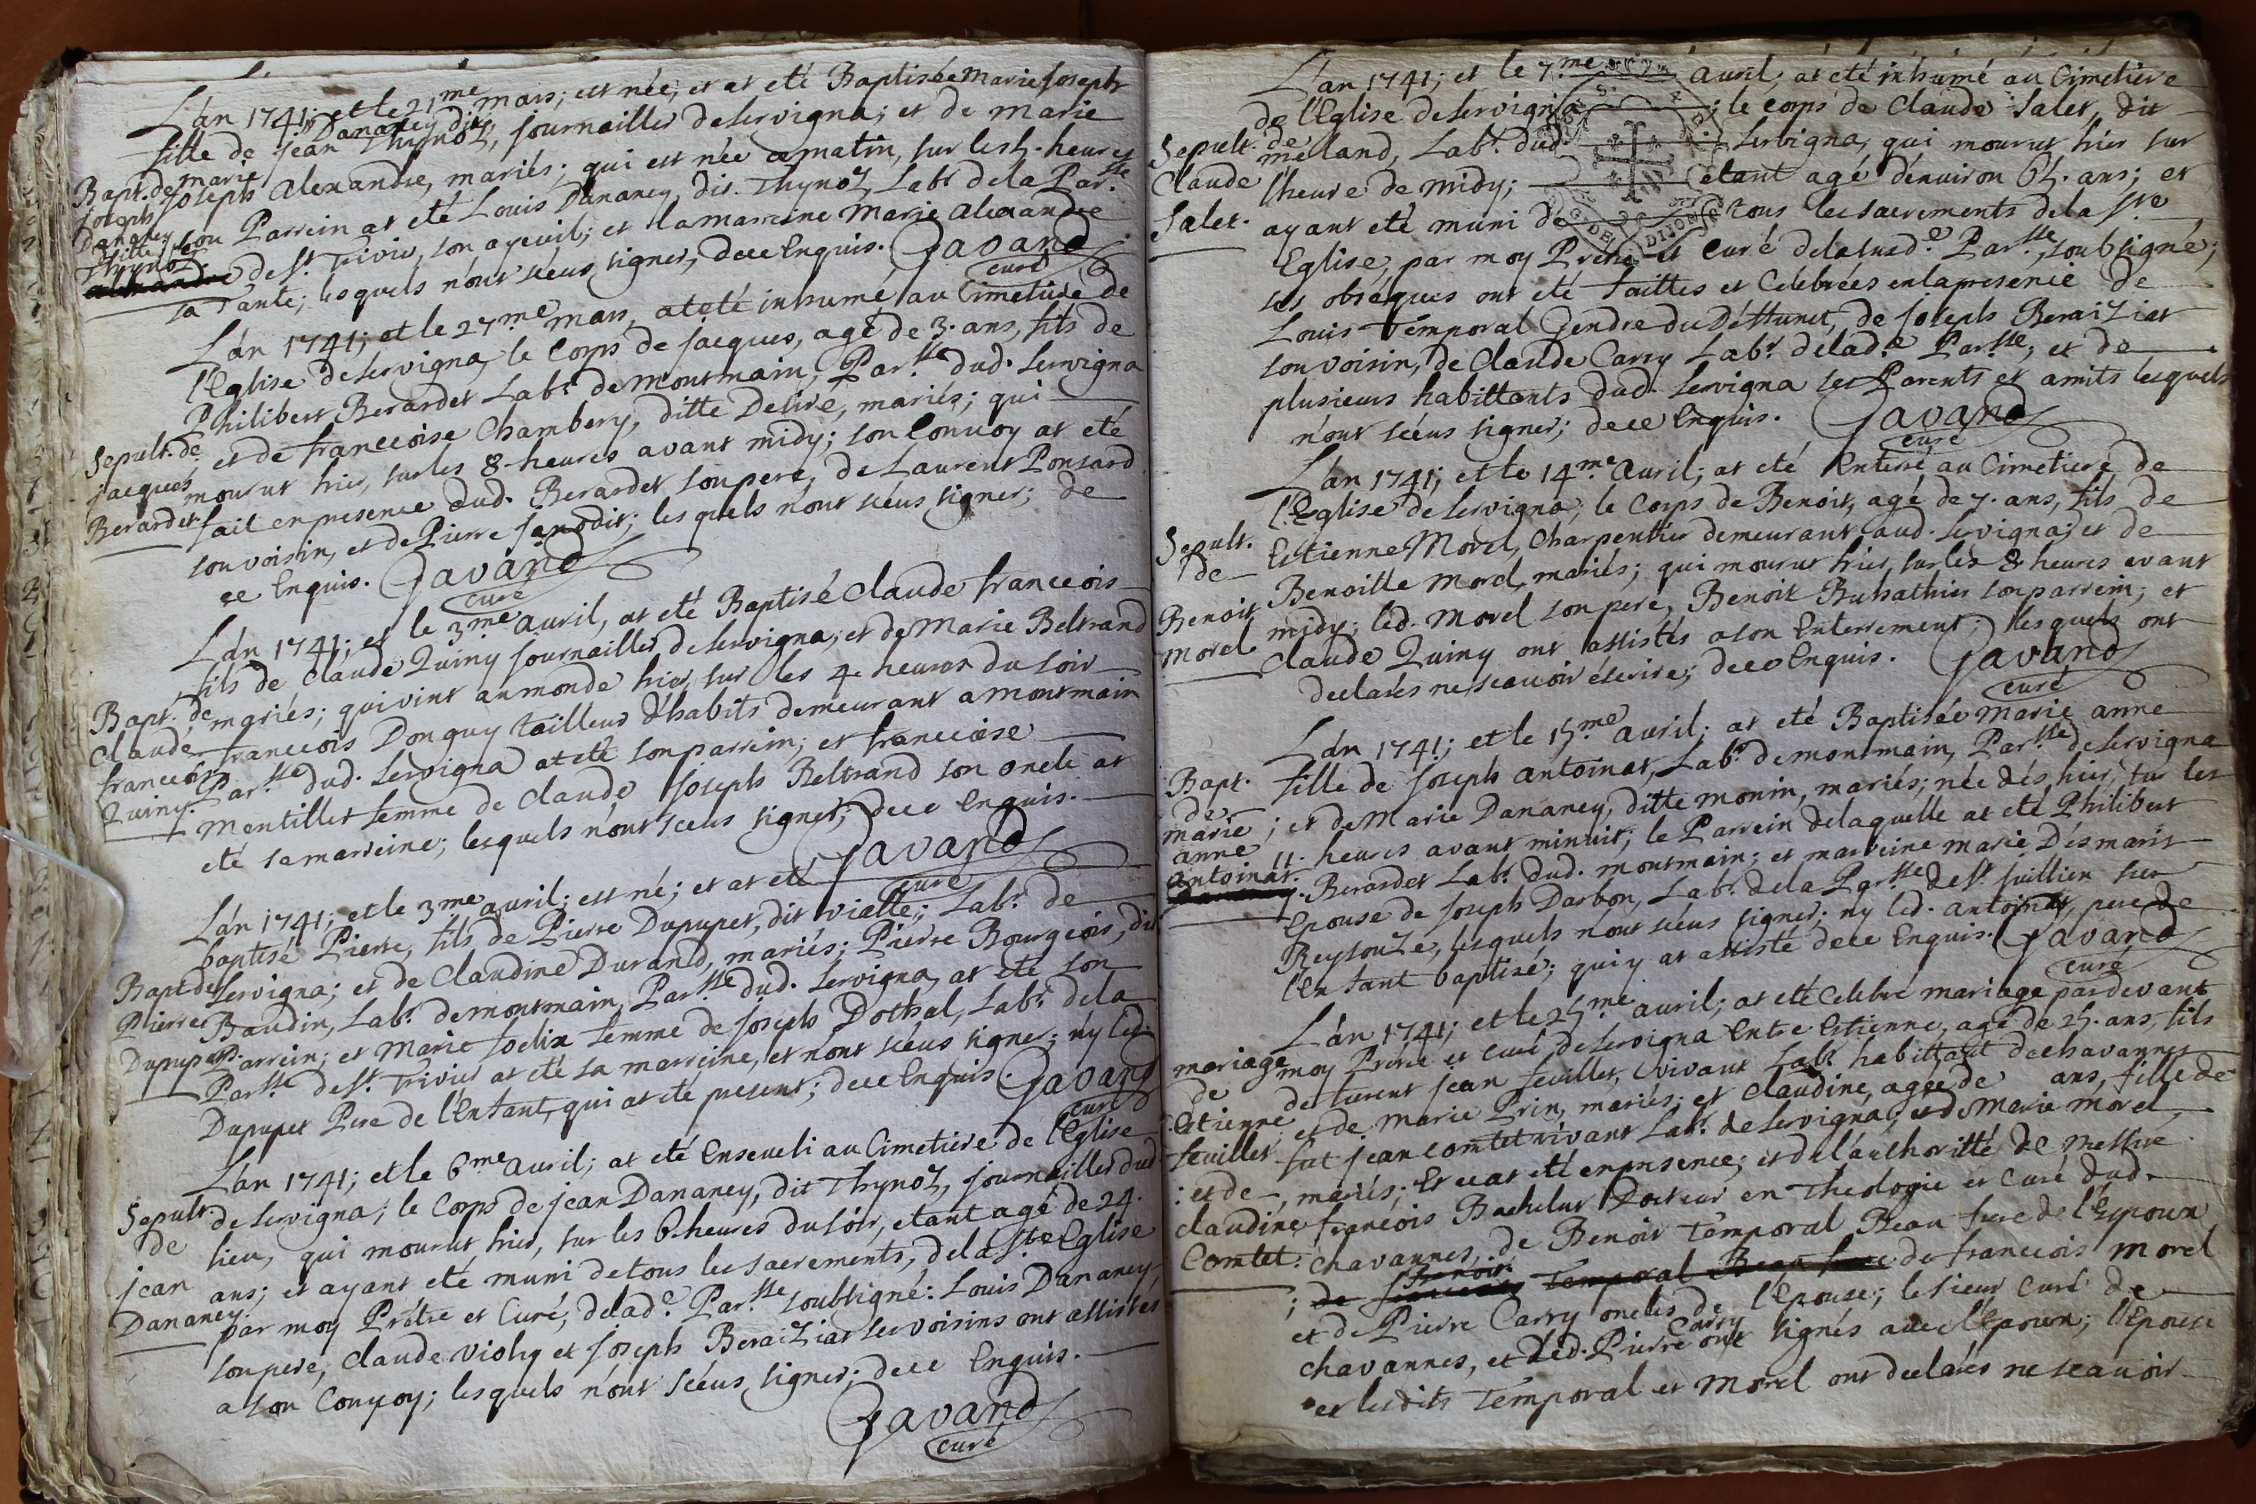 L'án 1741; et le 21.me mars; est née; et at eté Baptisée Marie Joseph
fille de Jean Dananey dit Thynoz, Journaillier de Servigna; et de Marie
Bapt. de Marie Joseph Dananey ditte Thynoz.
Joseph Alexandre, mariés; qui est née ce matin, sur les 5. heures
son Parrein at eté Louis Dananey dit Thynoz, Labr. de la Par.sse
de St. Trivier, son ayeuil; et la marreine Marie Alexandre
sa Tante; lesquels n'ont scéus signer, de ce Enquis. Gavand
curé
L'án 1741; et le 27.me mars, at eté inhumé au Cimetiere de
l'Eglise de Servigna, le Corps de Jacques, agé de 3. ans, fils de
Philibert Berardet Labr. de Montmain, Par.sse dud. Servigna
Sepult. de Jacques Berardet.
et de françoise Chambery, ditte Delire, mariés; qui
mourut hier, sur les 8. heures avant midy; son Convoy at eté
fait en presence dud. Berardet son pere, de Laurent Ponsard
son voisin, et de Pierre Janodit; les quels n'ont scéus signer; de
ce Enquis. Gavand
curé
L'án 1741; et le 3.me Avril, at eté Baptisé Claude francois
fils de Claude Quiny Journaillier de Servigna; et de Marie Beltrand
Bapt. de Claude francois Quiny.
mariés; qui vint au monde hier, sur les 4. heures du soir
francois Donguy tailleur d'habits demeurant a Montmain
Par.sse dud. Servigna at eté son parrein; et francoise
Mentillet femme de Claude Joseph Beltrand son oncle at
eté sa marreine; lesquels n'ont sceus signer; de ce Enquis.
Gavand
curé
L'án 1741; et le 3.me avril; est né; et at eté
baptisé Pierre, fils de Pierre Dupuget, dit vialle; Labr. de
Bapt. de Pierre Dupuget.
Servigna; et de Claudine Durand, mariés; Pierre Bourgeois, dit
Baudin, Labr. de montmain, Par.sse dud. Servigna, at eté son
Parrein; et Marie Joelix femme de Joseph Dothal, Labr. de la
Par.sse de St. Trivier at eté sa marreine, et n'ont scéus signer; n'y led.
Dupuget Pere de l'Enfant, qui at eté present; de ce Enquis. Gavand
curé
L'án 1741; et le 6.me Avril; at eté Enseveli au Cimetiere de l'Eglise
Sepult. de Jean Dananey.
de Servigna; le Corps de Jean Dananey, dit Thynoz, journaillier dud.
lieu, qui mourut hier, sur les 6. heures du soir, etant agé de 24.
ans; et ayant eté muni de tous les sacrements, de la Ste Eglise
par moy Prêtre et Curé, de lad.e Par.sse soubsigné: Louis Dananey,
son pere, Claude Viohy et Joseph Beraiziat ses voisins ont assistés
a son Convoy; lesquels n'ont scéus signer; de ce Enquis.
Gavand
curé
L'án 1741; et le 7.me avril, at eté inhumé au Cimetiere
de l'Eglise de Servigna; le corps de Claude Salet, dit
Sepult. de Claude Salet.
melland, Labr. dud. Servigna, qui mourut hier sur
l'heure de midy; etant agé d'environ 65. ans; et
ayant eté muni de tous les sacrements de la Ste
Eglise, par moy Prêtre et Curé de la susd.e Par.sse, soubsigné;
ses obséques ont eté faittes et Celebrées en la presence de
Louis Temporal Gendre du Deffunct, de Joseph Beraiziat
son voisin, de Claude Carry Labr. de lad.e Par.sse; et de
plusieurs habittants dud. Servigna ses Parents et amits lesquels
n'ont scéus signer; de ce Enquis. Gavand
curé
L'án 1741; et le 14.me Avril; at eté Enterré au Cimetiere de
l'Eglise de Servigna; le Corps de Benoit, agé de 7. ans, fils de
Sepult. de Benoit Morel
Estienne Morel, Charpentier demeurant aud. Servigna; et de
Benoitte Morel, mariés; qui mourut hier, sur les 8. heures avant
midy; led. Morel son pere, Benoit Buhathier son parrein; et
Claude Quiny ont assistés a son Enterrement; lesquels ont
declarés ne scavoir écrire; de ce Enquis. Gavand
curé
L'án 1741; et le 15.me Avril; at eté Baptisée Marie anne
Bapt. de marie anne antoinat.
fille de Joseph antoinat, Labr. de montmain, Par.sse de Servigna
; et de Marie Dananey, ditte monin, mariés; née dés hier, sur les
11. heures avant minuit; le Parrein de laquelle at eté Philibert
Berardet Labr. dud. montmain; et marreine marie Désmaris
Epouse de Joseph Darbon, Labr. de la Par.sse de St. Juillien sur
Reysouze, lesquels n'ont scéus signer; ny led. antoinat, pere de
l'enfant baptizé; qui y at assisté de ce Enquis. Gavand
curé
L'án 1741; et le 25.me avril; at eté Celebré mariage pardevant
mariage de Estienne feuillet : et de Claudine Comtet.
moy Prêtre et curé de Servigna Entre Estienne, agé de 25. ans, fils
de furent jean feuillet, vivant Labr. habittant de chavannes
et de Marie Prin, mariés; et Claudine, agée de ans, fille de
fut jean comtet vivant Labr. de Servigna; et de Marie Morel,
mariés; Et ce at eté en presence; et de l'authoritté de Messire
francois Bachelut Docteur en Theologie et Curé dud.
chavannes, de Benoit Temporal Beau frere de l'Epoux
; de francois Morel
et de Pierre Carry oncles de l'Epouze; le sieur Curé de
chavannes, et led. Pierre Carry ont signés avec l'Epoux; l'Epouse
et lesdits Temporal et Morel ont declarés ne scavoir